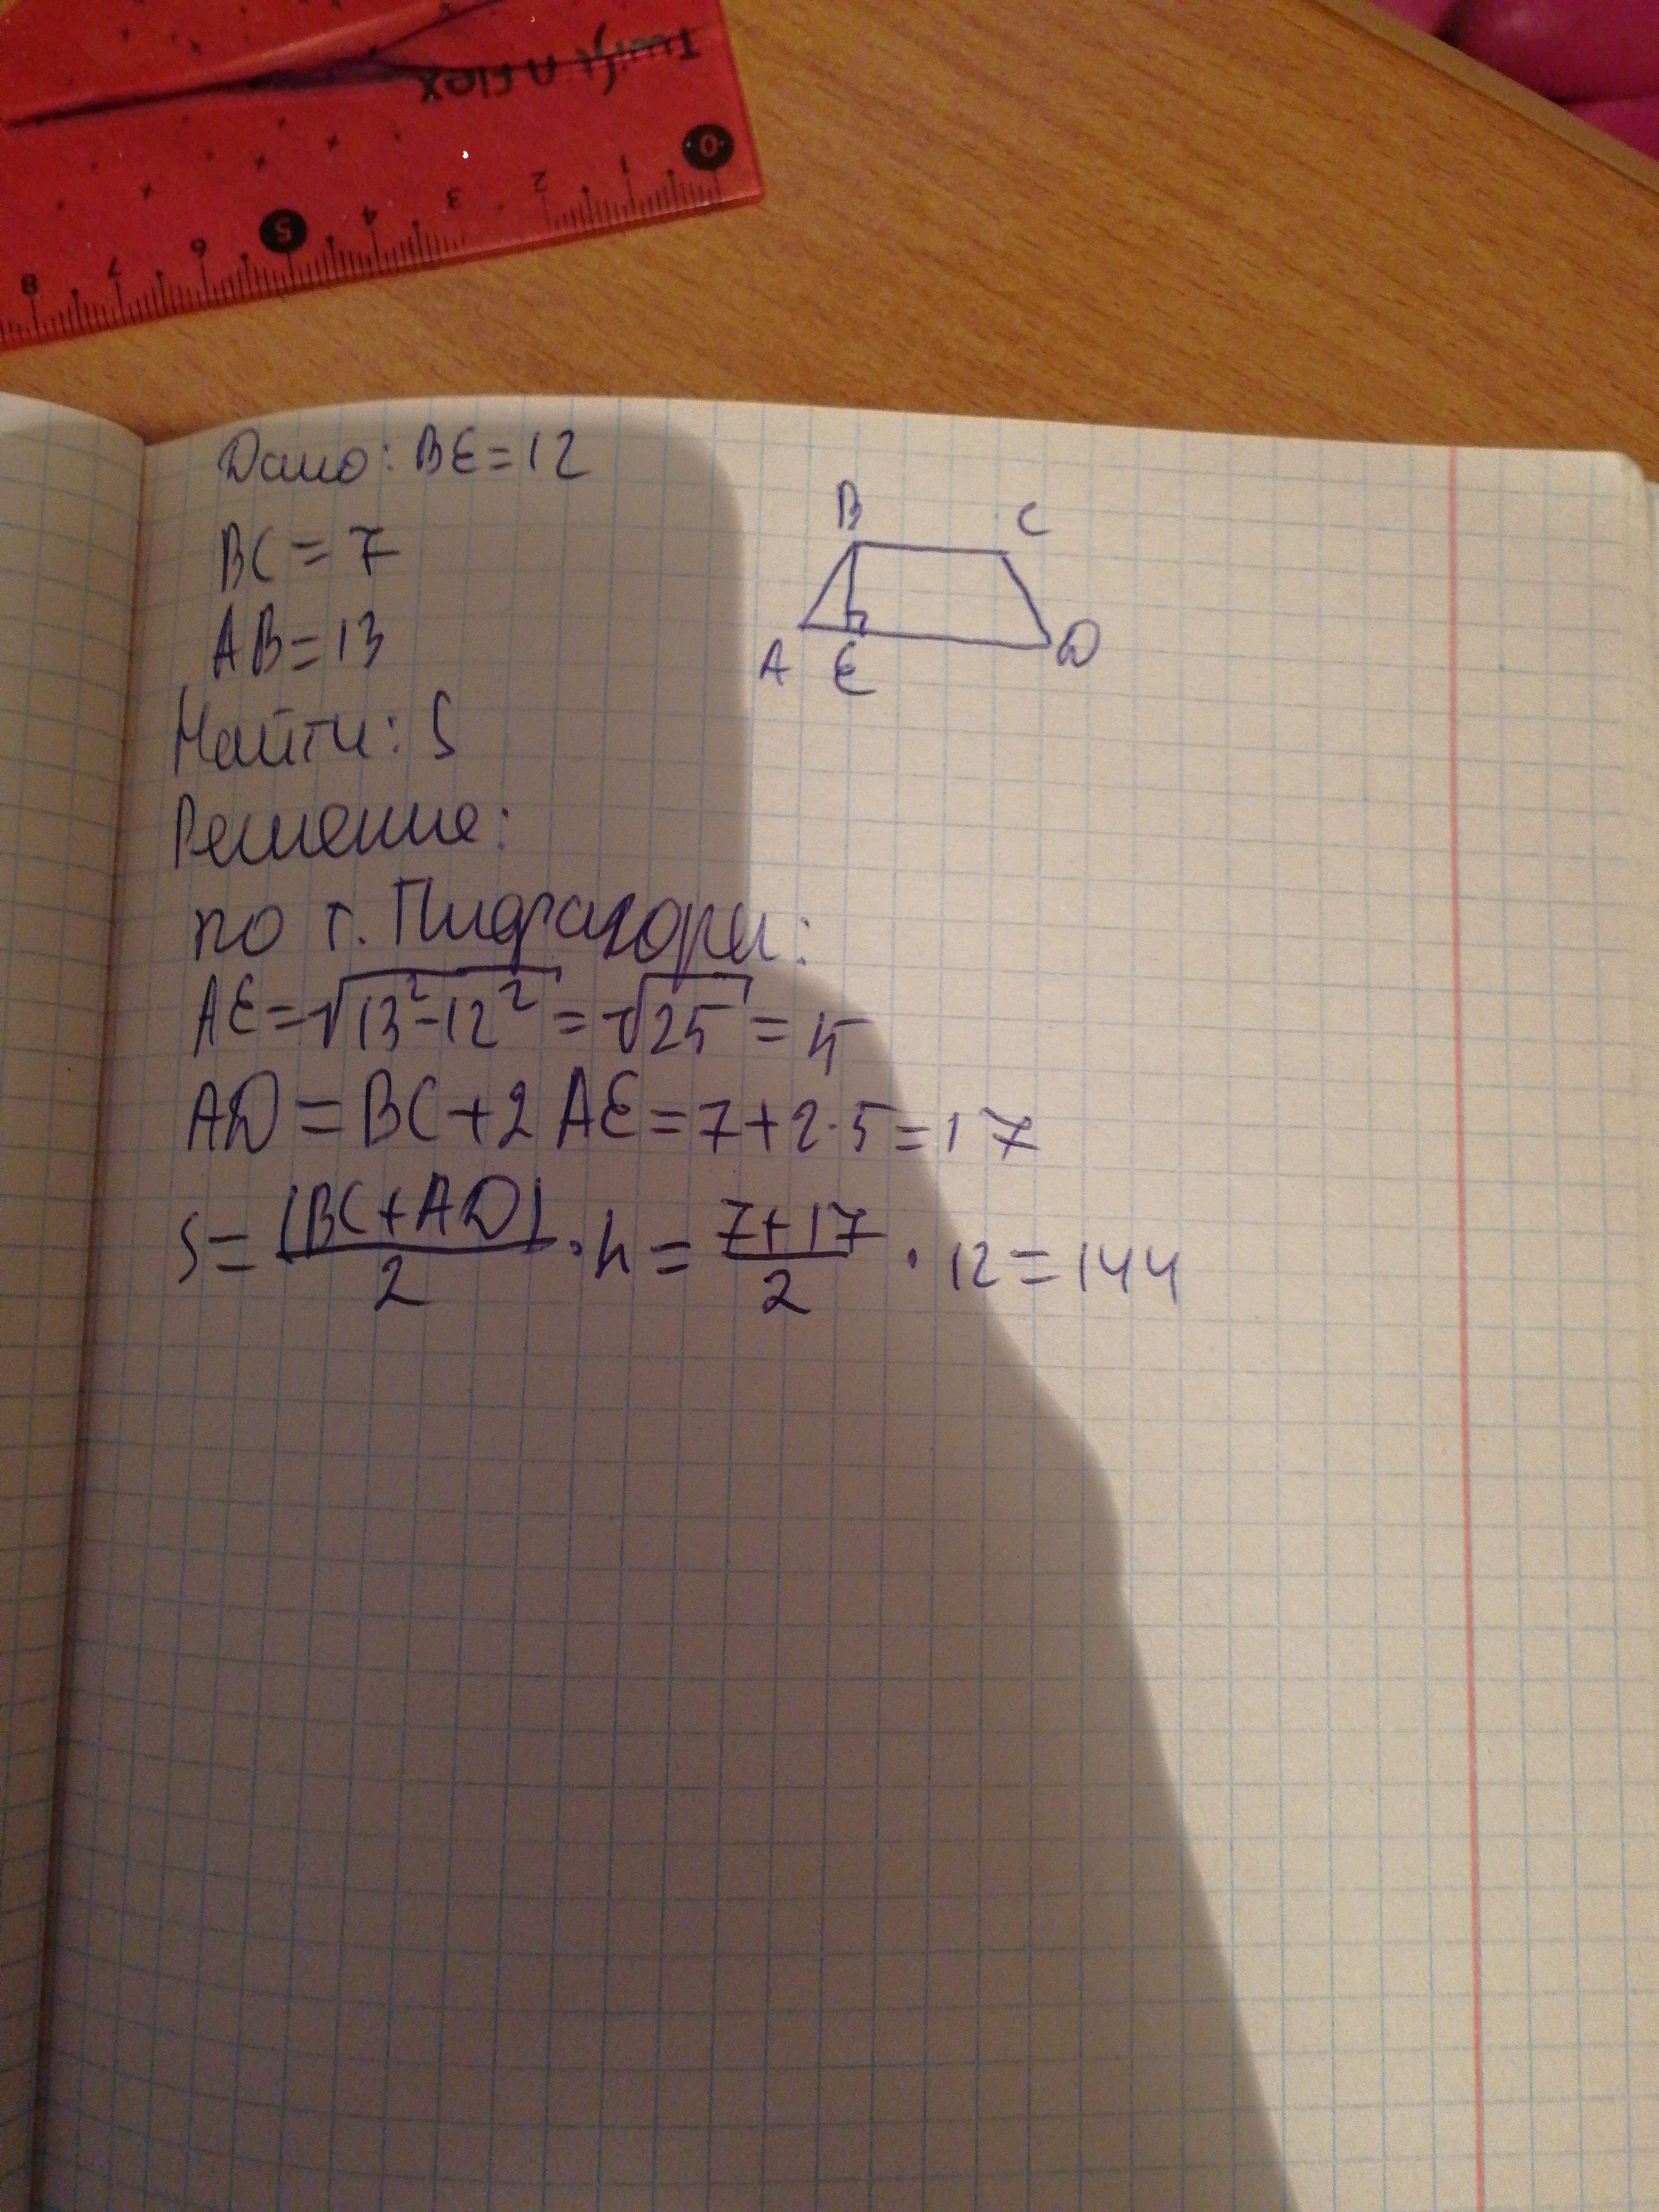 Twist n flex
0 1 2 3 4 5 6 7 8
Дано: BE=12
BC=7
AB=13
Найти: S
Решение:
по т. Пифагора:
AE=√13²-12²=√25=5
AD=BC+2AE=7+2·5=17
S=(BC+AD)/2·h=7+17/2·12=144
B C
A E D